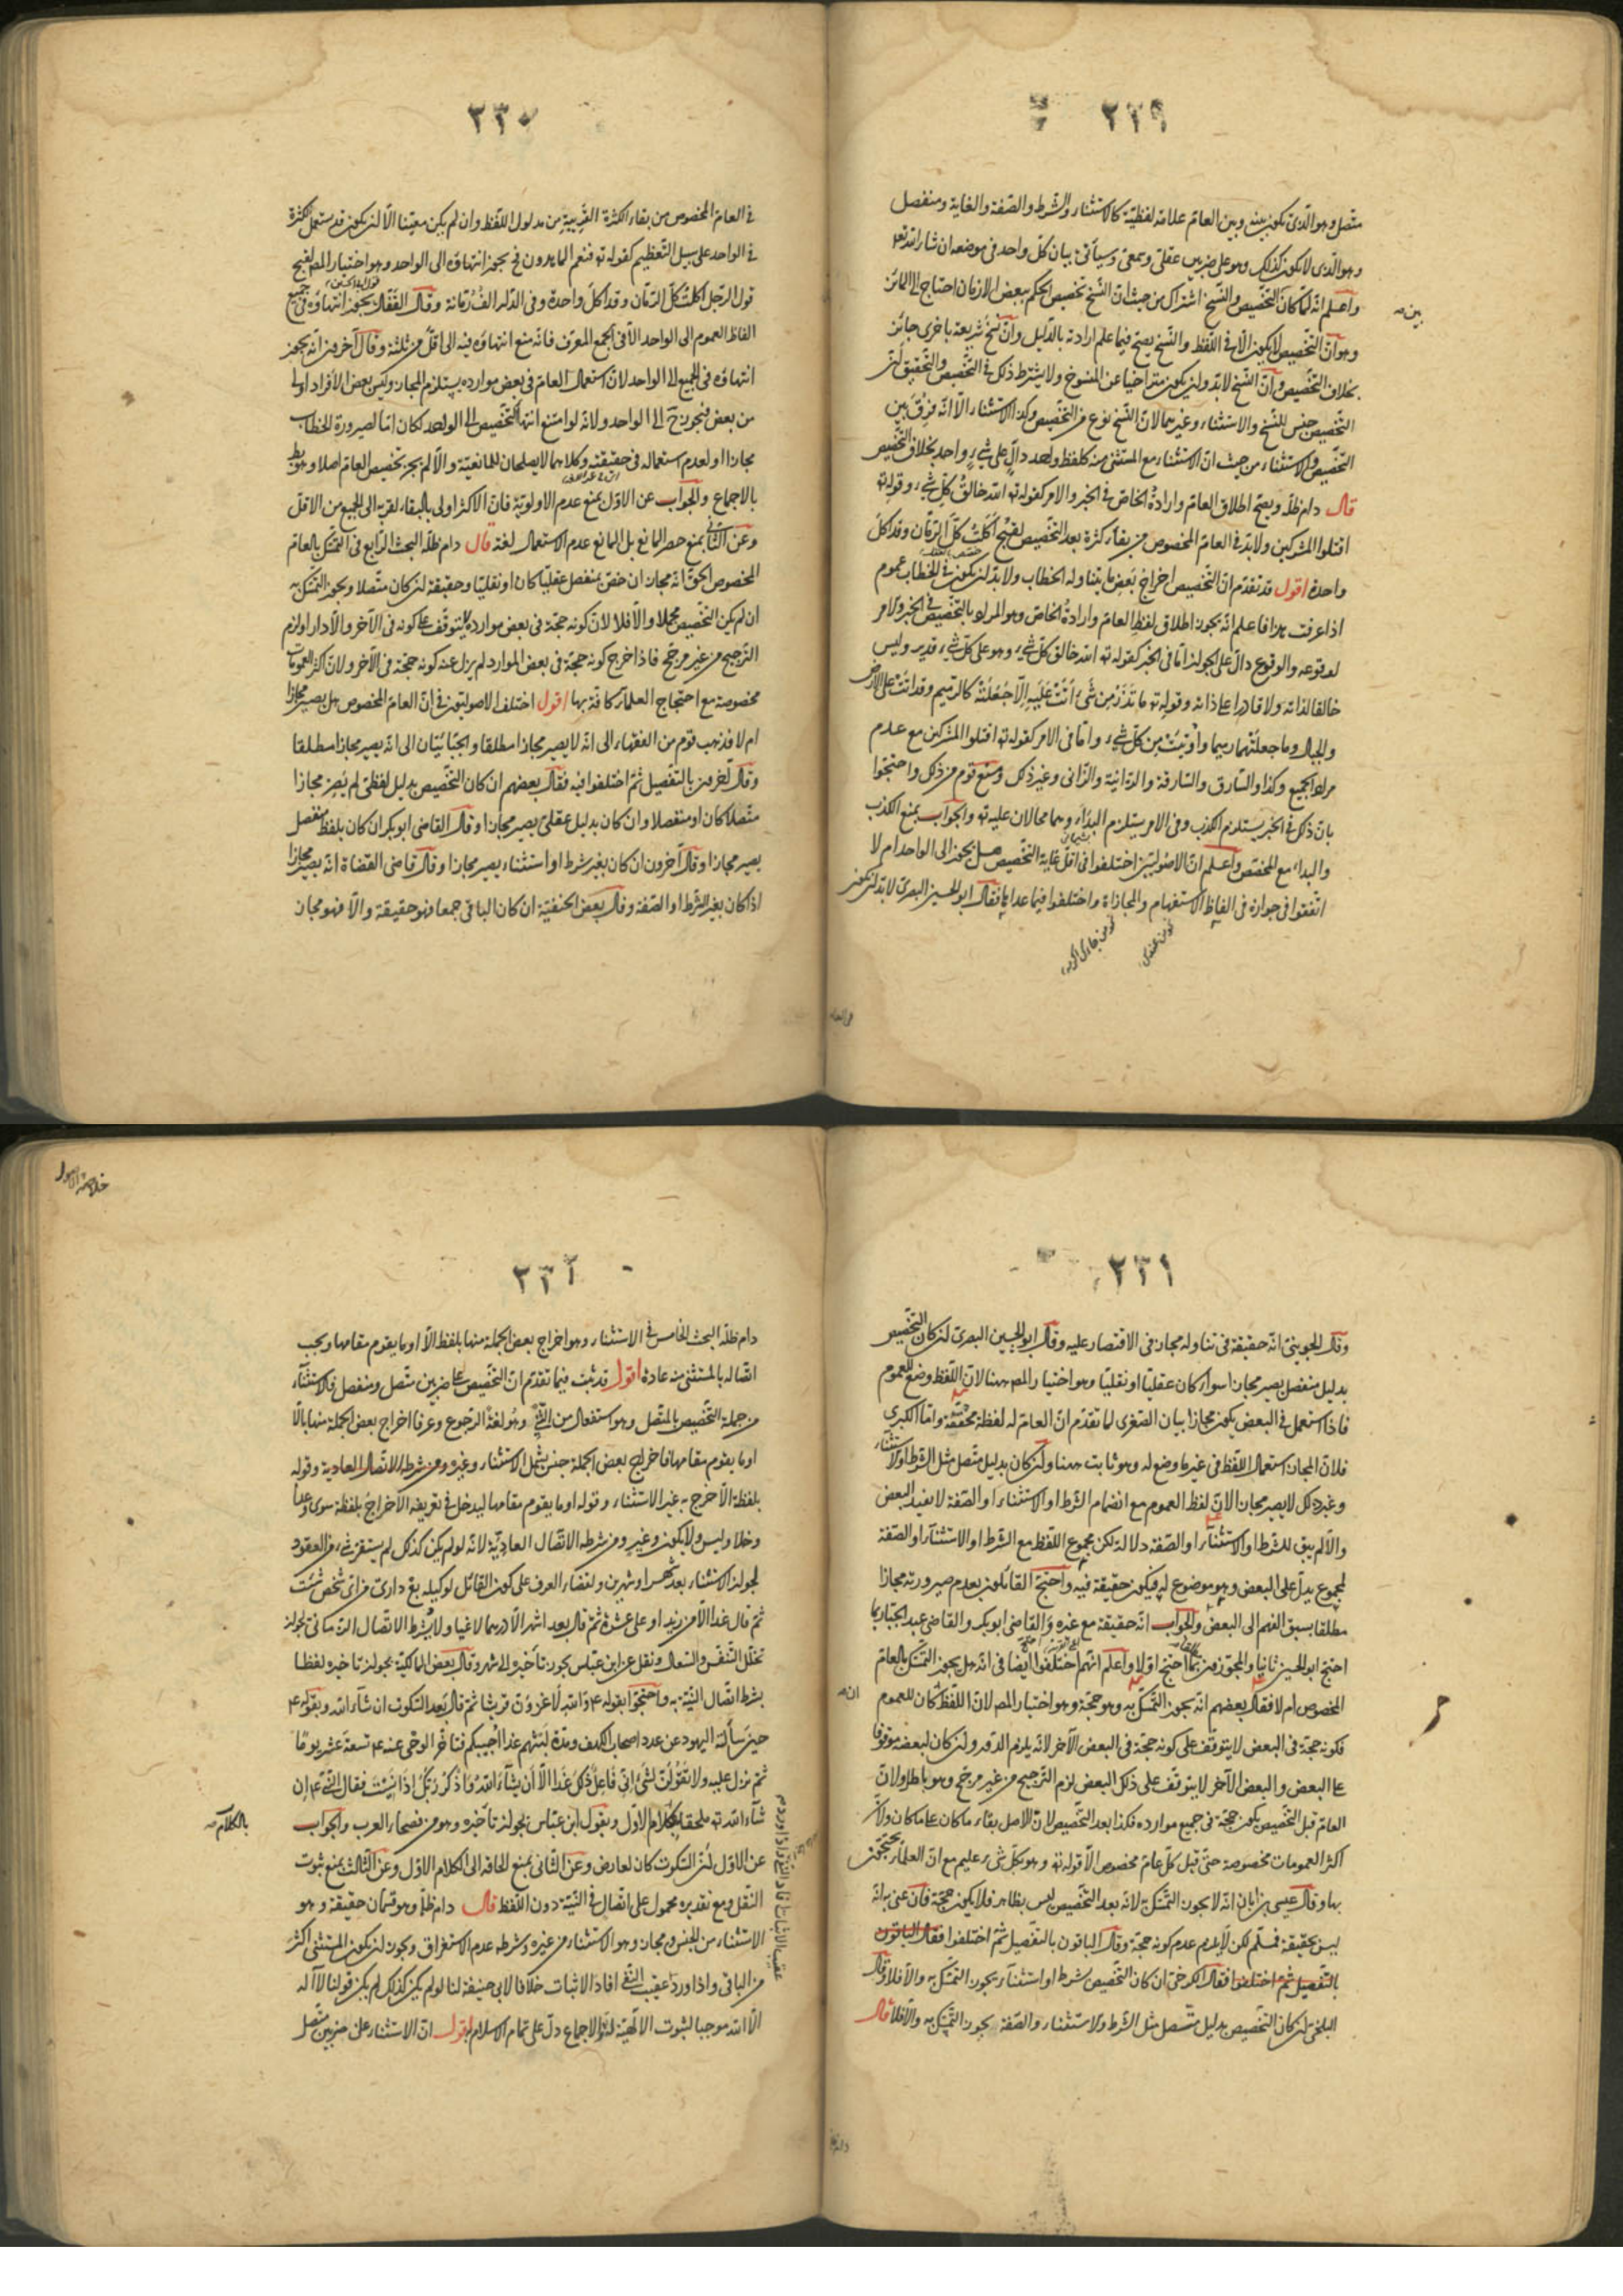 ٢٢٩
متصل وهو الذى يكون بينه وبين العام علاقة لفظية كالاستثناء والشرط والصفة والغاية ومنفصل
وهو الذى لا يكون كذلك وهو على ضربين عقلى وسمعى وسيأتى بيان كل واحد فى موضعه ان شاء الله تع
واعلم انه لما كان التخصيص والنسخ اشتراك من حيث ان النسخ تخصيص الحكم ببعض الازمان احتاج الى المائز
بين صه
وهو ان التخصيص لا يكون الا فى اللفظ والنسخ يصح فيما علم ارادته بالدليل وان نسخ شريعة باخرى جائز
بخلاف التخصيص وان النسخ لا بد وان يكون متراخيا عن المنسوخ ولا يشترط ذلك فى التخصيص والتحقيق ان
التخصيص جنس للنسخ والاستثناء وغيرهما لان النسخ نوع من التخصيص وكذا الاستثناء الا انه فرق بين
التخصيص والاستثناء من حيث ان الاستثناء مع المستثنى منه كلفظ واحد دال على شىء واحد بخلاف التخصيص
قال دام ظله ويصح اطلاق العام وارادة الخاص فى الخبر والامر كقوله ته الله خالق كل شىء وقوله ته
اقتلوا المشركين ولا بد فى العام المخصوص من بقاء كثرة بعد التخصيص لقبح اكلت كل الرمان وقد اكل
واحدة اقول قد تقدم ان التخصيص اخراج بعض ما يتناوله الخطاب ولا بد ان يكون فى الخطاب عموم
اذا عرفت هذا فاعلم انه يجوز اطلاق لفظ العام وارادة الخاص وهو المراد بالتخصيص فى الخبر والامر
لوقوعه والوقوع دال على الجواز اما فى الخبر كقوله ته الله خالق كل شىء وهو على كل شىء قدير وليس
خالقا لذاته ولا قادرا على ذاته وقوله ته ما تذر من شىء اتت عليه الا جعلته كالرميم وقد اتت على الارض
والجبال وما جعلتهما رميما واوتيت من كل شىء واما فى الامر كقوله ته اقتلوا المشركين مع عدم
مراد الجميع وكذا والسارق والسارقة والزانية والزانى وغير ذلك ومنع قوم من ذلك واحتجوا
بان ذلك فى الخبر يستلزم الكذب وفى الامر يستلزم البداء وهما محالان عليه ته والجواب بمنع الكذب
والبداء مع المخصص واعلم ان الاصوليين اختلفوا فى اقل غاية التخصيص هل يجوز الى الواحد ام لا
اتفقوا فى جوازه فى الفاظ الاستفهام والمجازاة واختلفوا فيما عداها فقال ابو الحسين البصرى لا بد ان يكون
٢٣٠
فى العام المخصوص من بقاء الكثرة القريبة من مدلول اللفظ وان لم يكن معينا الا ان يكون قد يستعمل الكثرة
فى الواحد على سبيل التعظيم كقوله ته فنعم الماهدون فح يجوز انتهاؤه الى الواحد وهو اختيار المصر لقبح
قول الرجل اكلت كل الرمان وقد اكل واحدة وفى الدار الف رمانة وقال القفال يجوز انتهاؤه فى جميع
الفاظ العموم الى الواحد الا فى الجمع المعرف فانه منع انتهاؤه فيه الى اقل من ثلثة وقال آخرون انه يجوز
انتهاؤه فى الجميع الى الواحد لان استعمال العام فى بعض موارده يستلزم المجاز وليس بعض الافراد اولى
من بعض فيجوز ح الى الواحد ولانه لو امتنع انتهاء التخصيص الى الواحد لكان اما لصيرورة الخطاب
مجازا او لعدم استعماله فى حقيقته وكلاهما لا يصلحان للمانعية والا لم يجز تخصيص العام اصلا وهو بط
بالاجماع والجواب عن الاول بمنع عدم الاولوية فان الاكثر اولى بالبقاء لقربه الى الجميع من الاقل
وعن الثانى بمنع حصر المانع بل المانع عدم الاستعمال لغة قال دام ظله البحث الرابع فى التمسك بالعام
المخصوص الحق انه مجاز ان خص بمنفصل عقليا كان او نقليا وحقيقة ان كان متصلا ويجوز التمسك به
ان لم يكن التخصيص مجملا والا فلا لان كونه حجة فى بعض موارده لا يتوقف على كونه فى الآخر والا دار او لزم
الترجيح من غير مرجح فاذا خرج كونه حجة فى بعض الموارد لم يزل عنه كونه حجة فى الآخر ولان اكثر العمومات
مخصوصة مع احتجاج العلماء كافة بها اقول اختلف الاصوليون فى ان العام المخصوص هل يصير مجازا
ام لا فذهب قوم من الفقهاء الى انه لا يصير مجازا مطلقا والجبائيان الى انه يصير مجازا مطلقا
وقال آخرون بالتفصيل ثم اختلفوا فيه فقال بعضهم ان كان التخصيص بدليل لفظى لم يصر مجازا
متصلا كان او منفصلا وان كان بدليل عقلى يصير مجازا وقال القاضى ابو بكر ان كان بلفظ منفصل
يصير مجازا وقال آخرون ان كان بغير شرط او استثناء يصير مجازا وقال قاضى القضاة انه يصير مجازا
اذا كان بغير الشرط او الصفة وقال بعض الحنفية ان كان الباقى جمعا فهو حقيقة والا فهو مجاز
٢٣١
وقال الجوينى انه حقيقة فى تناوله مجاز فى الاقتصار عليه وقال ابو الحسين البصرى ان كان التخصيص
بدليل منفصل يصير مجازا سواء كان عقليا او نقليا وهو اختيار المصر ههنا لان اللفظ وضع للعموم
فاذا استعمل فى البعض يكون مجازا بيان الصغرى لما تقدم ان العام له لفظة محققة واما الكبرى
فلان المجاز استعمال اللفظ فى غير ما وضع له وهو ثابت ههنا وان كان بدليل متصل مثل الشرط او الاستثناء
وغير ذلك لا يصير مجازا لان لفظ العموم مع انضمام الشرط او الاستثناء او الصفة لا يفيد البعض
والا لم يبق للشرط او الاستثناء او الصفة دلالة لكن مجموع اللفظ مع الشرط او الاستثناء او الصفة
المجموع يدل على البعض وهو موضوع له فيكون حقيقة فيه واحتج القائلون بعدم صيرورته مجازا
مطلقا بسبق الفهم الى البعض والجواب انه حقيقة مع غيره والقاضى ابو بكر والقاضى عبد الجبار بما
احتج ابو الحسين ثانيا والمجوزون بما احتج اولا واعلم انهم اختلفوا ايضا فى انه هل يجوز التمسك بالعام
المخصوص ام لا فقال بعضهم انه يجوز التمسك به وهو حجة وهو اختيار المصر لان اللفظ كان للعموم
فكونه حجة فى البعض لا يتوقف على كونه حجة فى البعض الآخر لانه يلزم الدور وان كان لبعضه موقوفا
على البعض والبعض الآخر لا يتوقف على ذلك البعض لزم الترجيح من غير مرجح وهو باطل ولان
العام قبل التخصيص يكون حجة فى جميع موارده فكذا بعد التخصيص لان الاصل بقاء ما كان على ما كان ولان
اكثر العمومات مخصوصة حتى قيل كل عام مخصوص الا قوله ته وهو بكل شىء عليم مع ان العلماء يحتجون
بها وقال عيسى بن ابان انه لا يجوز التمسك به لانه بعد التخصيص ليس بظاهر فلا يكون حجة فان عنى به انه
ليس بحقيقة فمسلم لكن لا يلزم عدم كونه حجة وقال الباقون بالتفصيل ثم اختلفوا فقال الباقون
بالتفصيل ثم اختلفوا فقال الكرخى ان كان التخصيص بشرط او استثناء يجوز التمسك به والا فلا وقال
البلخى ان كان التخصيص بدليل متصل مثل الشرط والاستثناء والصفة يجوز التمسك به والا فلا قال
خلاصة الاصول
دام ظله البحث الخامس فى الاستثناء وهو اخراج بعض الجملة منها بلفظ الا او ما يقوم مقامها ويجب
اتصاله بالمستثنى منه عادة اقول قد ثبت فيما تقدم ان التخصيص على ضربين متصل ومنفصل فالاستثناء
من جملة التخصيص بالمتصل وهو استفعال من الثنى وهو لغة الرجوع وعرفا اخراج بعض الجملة منها بالا
او ما يقوم مقامها فاخراج بعض الجملة جنس يشمل الاستثناء وغيره ومن شرطه الاتصال العادية وقوله
بلفظة الا خرج به غير الاستثناء وقوله او ما يقوم مقامها ليدخل فى تعريفه الاخراج بلفظة سوى وعدا
وخلا وليس ولا يكون وغير ومن شرطه الاتصال العادية لانه لو لم يكن كذلك لم يستقر شىء من العقود
لجواز الاستثناء بعد شهر او شهرين ولقضاء العرف على كون القائل لوكيله بع دارى من اى شخص شئت
ثم قال غدا الا من زيد او على عشرة ثم قال بعد اشهر الا درهما لاغيا ولا يشترط الاتصال الزمانى لجواز
تخلل التنفس والسعال ونقل عن ابن عباس يجوز تأخيره الى شهر وقال بعض المالكية بجواز تأخيره لفظا
بشرط اتصال النية به واحتجوا بقوله ع والله لاغزون قريشا ثم قال بعد السكوت ان شاء الله وبقوله ع
حين سألته اليهود عن عدد اصحاب الكهف ومدة لبثهم غدا اجيبكم فتأخر الوحى عنه ع تسعة عشر يوما
ثم نزل عليه ولا تقولن لشىء انى فاعل ذلك غدا الا ان يشاء الله واذكر ربك اذا نسيت فقال النبى ع ان
شاء الله ته ملحقا بكلام الاول وبقول ابن عباس بجواز تأخيره وهو من فصحاء العرب والجواب
بالكلام صه
عن الاول ان السكوت كان لعارض وعن الثانى بمنع الحاقه الى الكلام الاول وعن الثالث بمنع ثبوت
النقل ومع تقديره محمول على اتصال فى النية دون اللفظ قال دام ظله وهو قسمان حقيقة وهو
الاستثناء من الجنس ومجاز وهو الاستثناء من غيره وشرطه عدم الاستغراق ويجوز ان يكون المستثنى اكثر
من الباقى واذا ورد عقيب النفى افاد الاثبات خلافا لابى حنيفة لنا لو لم يكن كذلك لم يكن قولنا لا اله
الا الله موجبا لثبوت الالهية لله والاجماع دل على تمام الاسلام به اقول ان الاستثناء على ضربين متصل